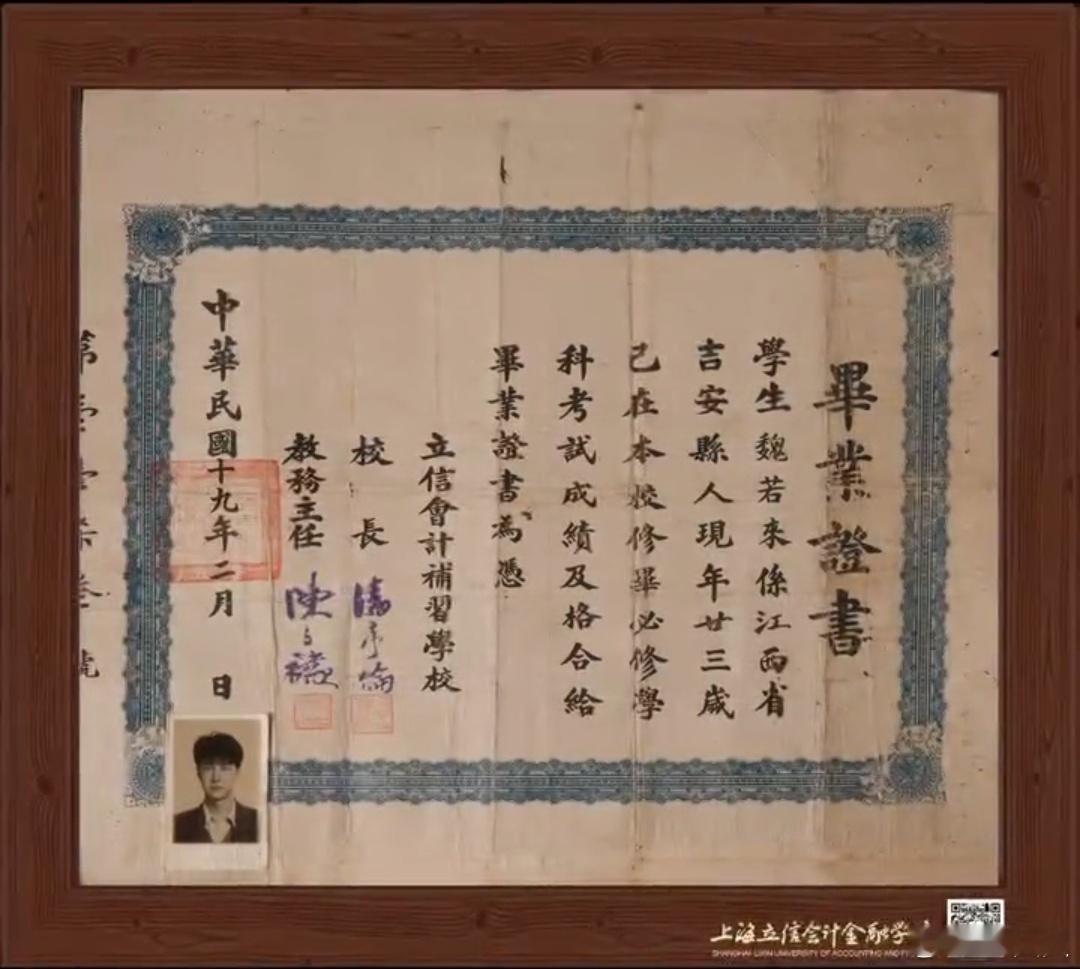 畢業證書
學生魏若來係江西省
吉安縣人現年廿三歲
已在本校修畢必修學
科考試成績及格合給
畢業證書為憑
立信會計補習學校
校長
教務主任
中華民國十九年二月 日
第
號
上海立信会计金融学
SHANGHAI LIXIN UNIVERSITY OF ACCOUNTING AND